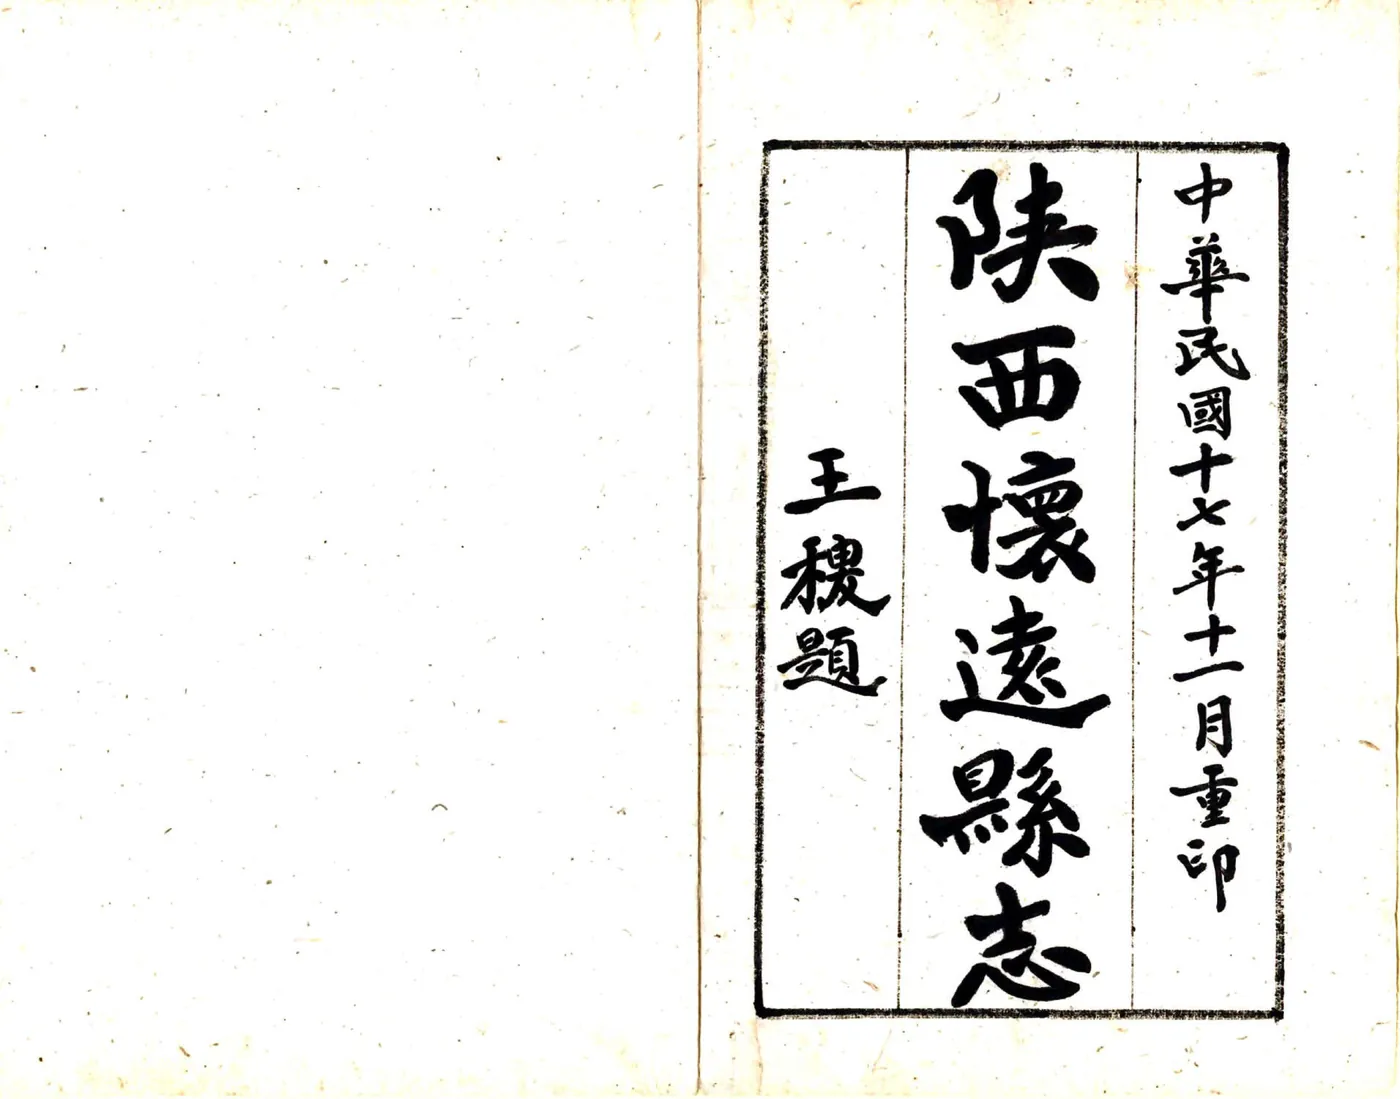 中華民國十七年十一月重印
陜西懷遠縣志
王稷題